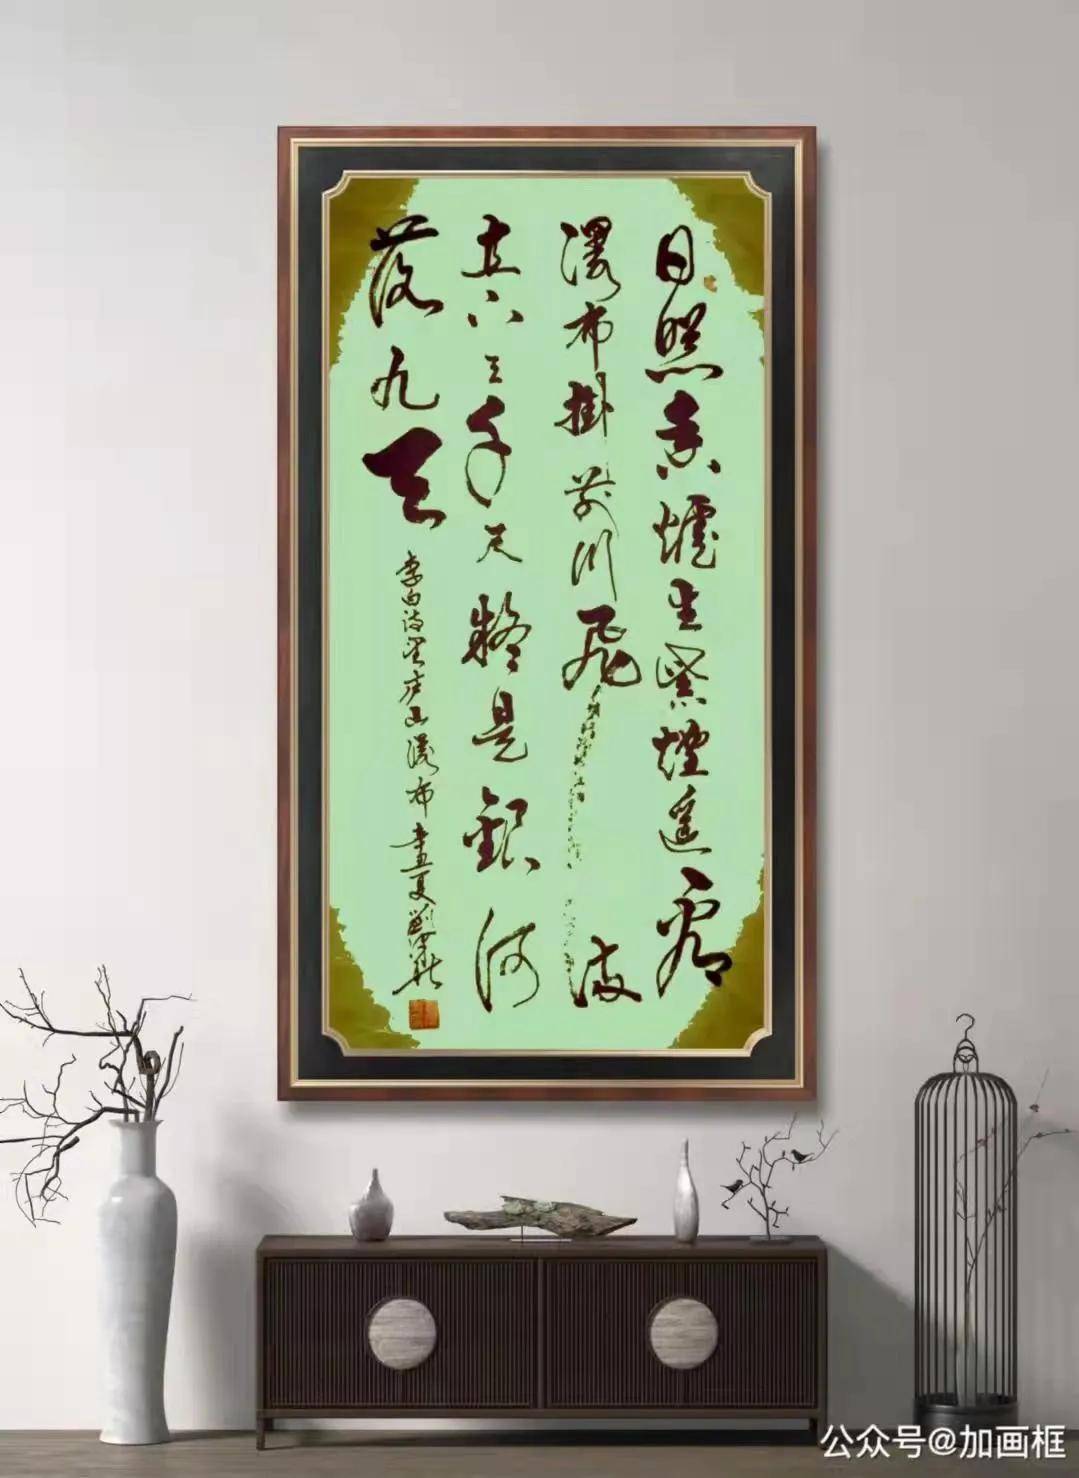 日照香爐生紫煙遥看
瀑布掛前川飛流
直下三千尺疑是銀河
落九天
李白诗望庐山瀑布 辛丑夏劉
公众号@加画框